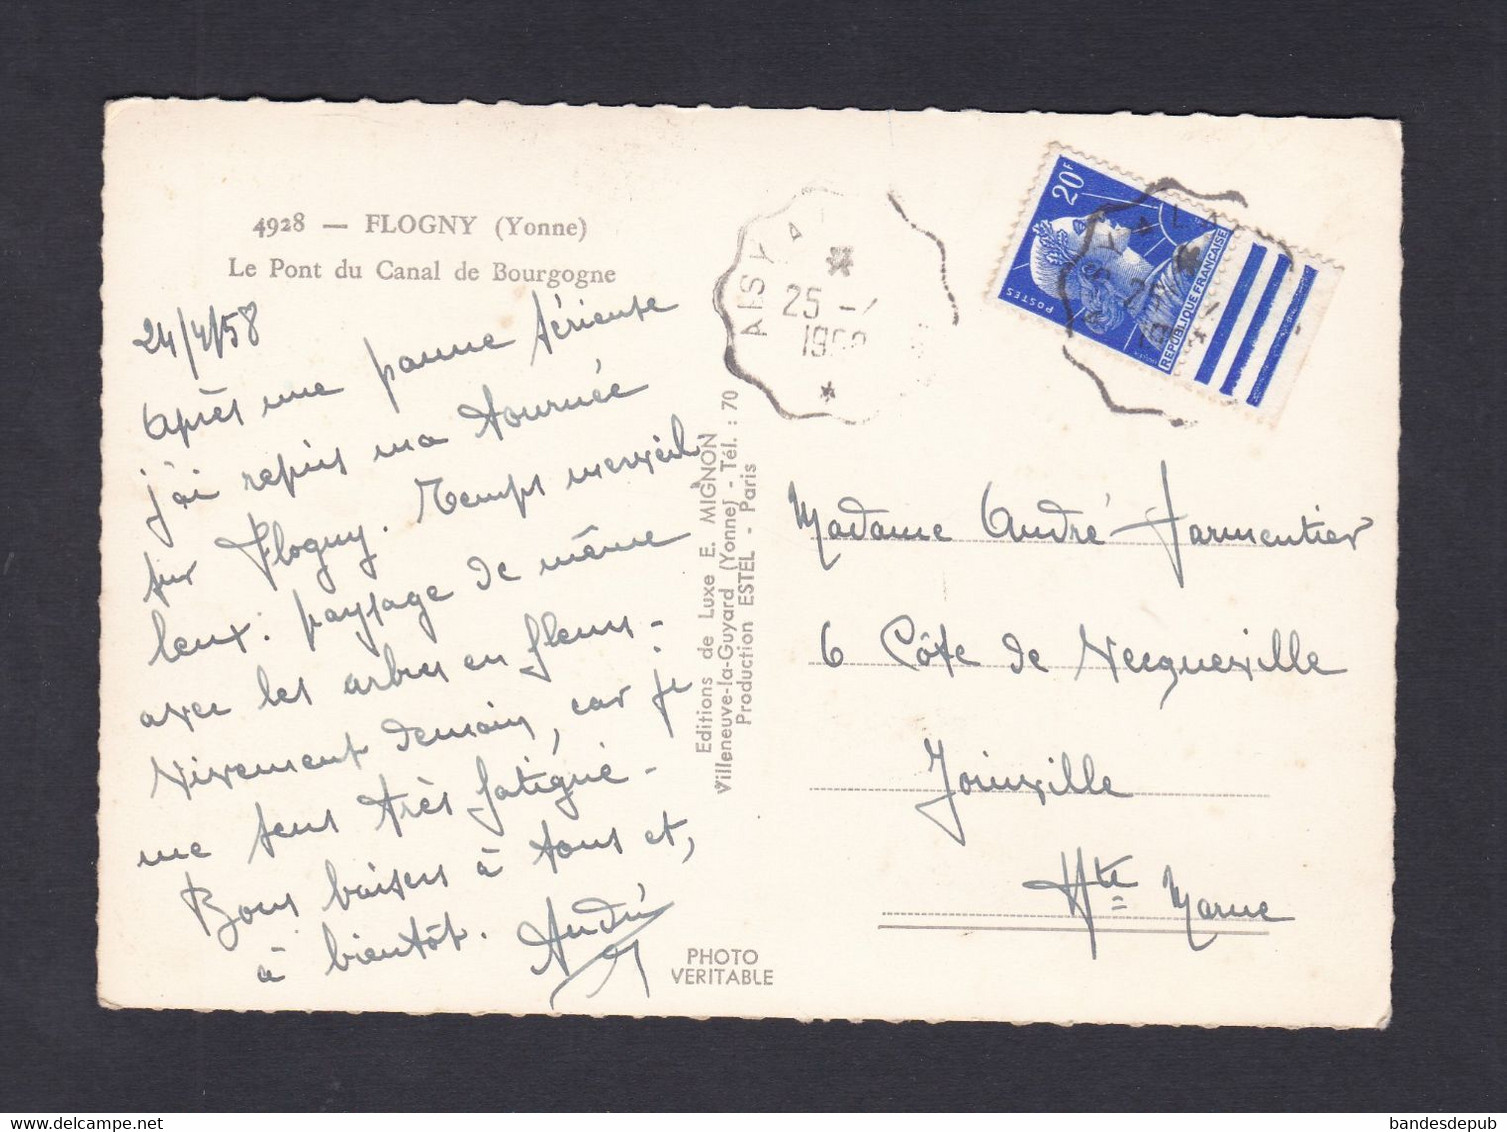 4928 — FLOGNY (Yonne)
Le Pont du Canal de Bourgogne
24/4/58
Après une panne sérieuse
j'ai repris ma tournée
sur Flogny. Temps merveil
leux. paysage de même
avec les arbres en fleurs -
Vivement demain, car je
me sens très fatigué -
Bons baisers à tous et,
à bientôt. André
Editions de Luxe E. MIGNON
Villeneuve-la-Guyard (Yonne) - Tél. : 70
Production ESTEL - Paris
PHOTO
VERITABLE
AISY A
25 -
19
20F
POSTES
REPUBLIQUE FRANÇAISE
25
Madame André Parmentier
6 Côte de Vecqueville
Joinville
Hte Marne
delcampe.net
bandesdepub